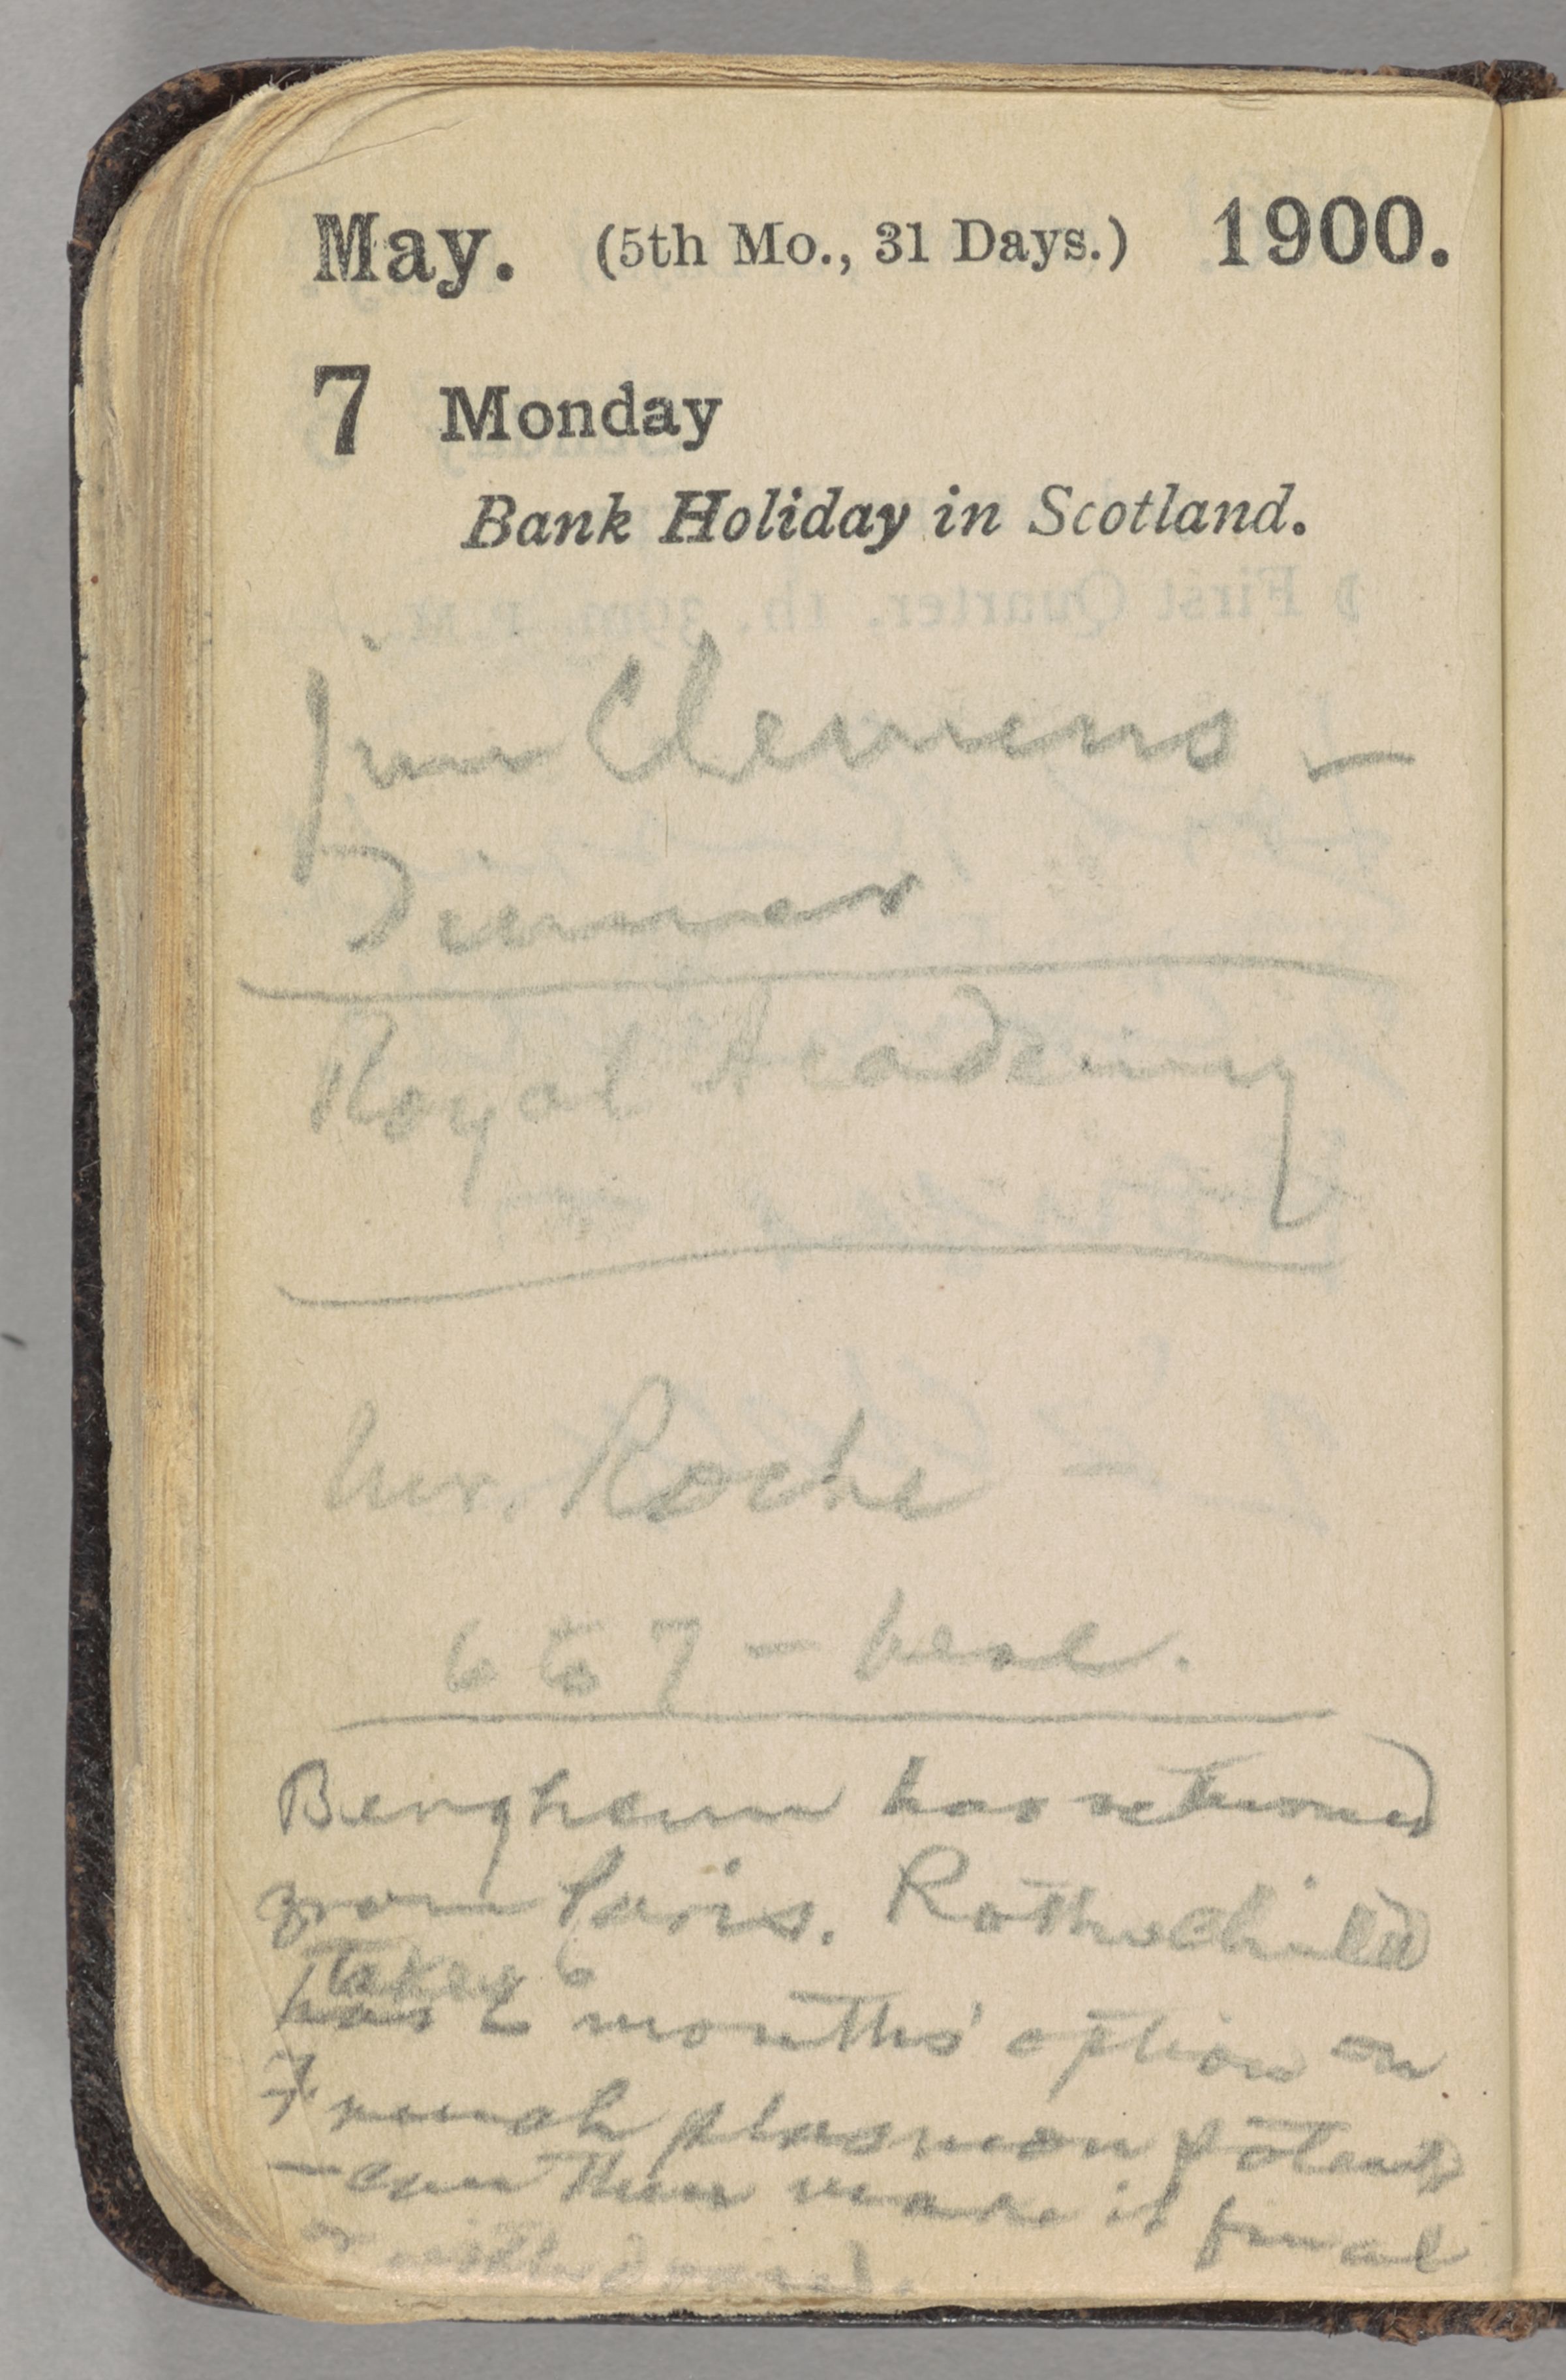 May. (5th Mo., 31 Days.) 1900.
7 Monday
Bank Holiday in Scotland.
Jim Clemens —
Dinner
Royal Academy
Mr. Roche —
6 to 7 — heal.
Bergheim has returned
from Paris. Rothschild
takes 6
has 2 months' option on
French plasmon patents
— can then make it final
or withdraw.